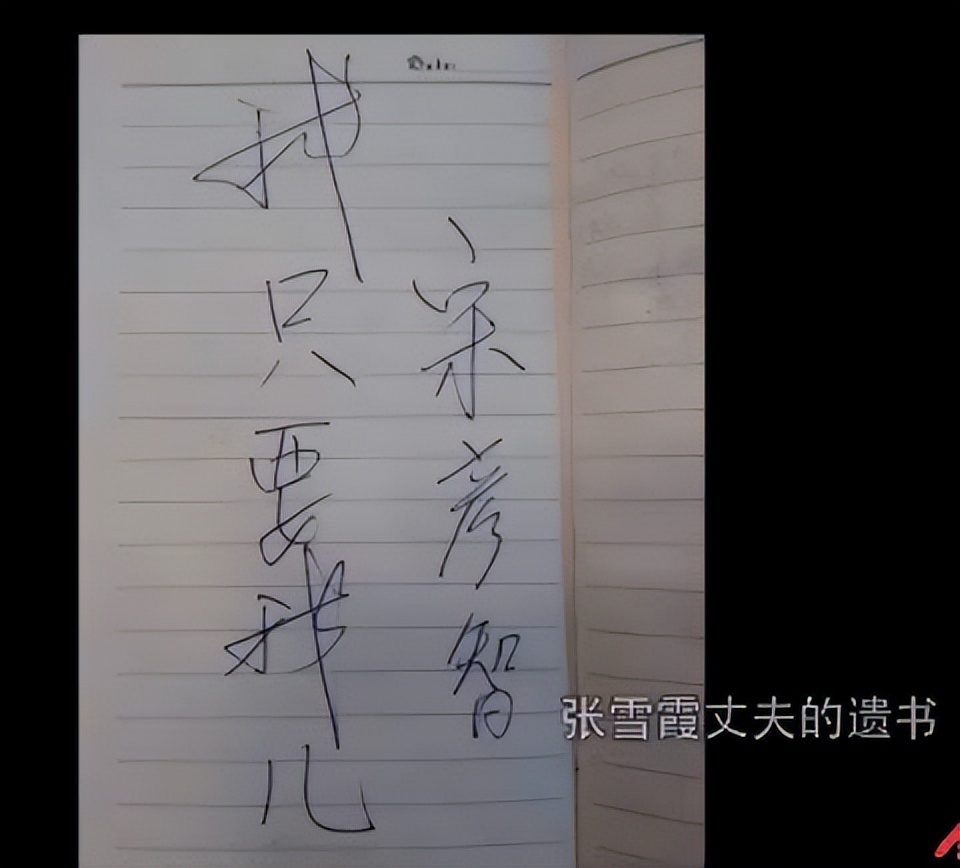 我只要我儿
宋彦智
张雪霞丈夫的遗书